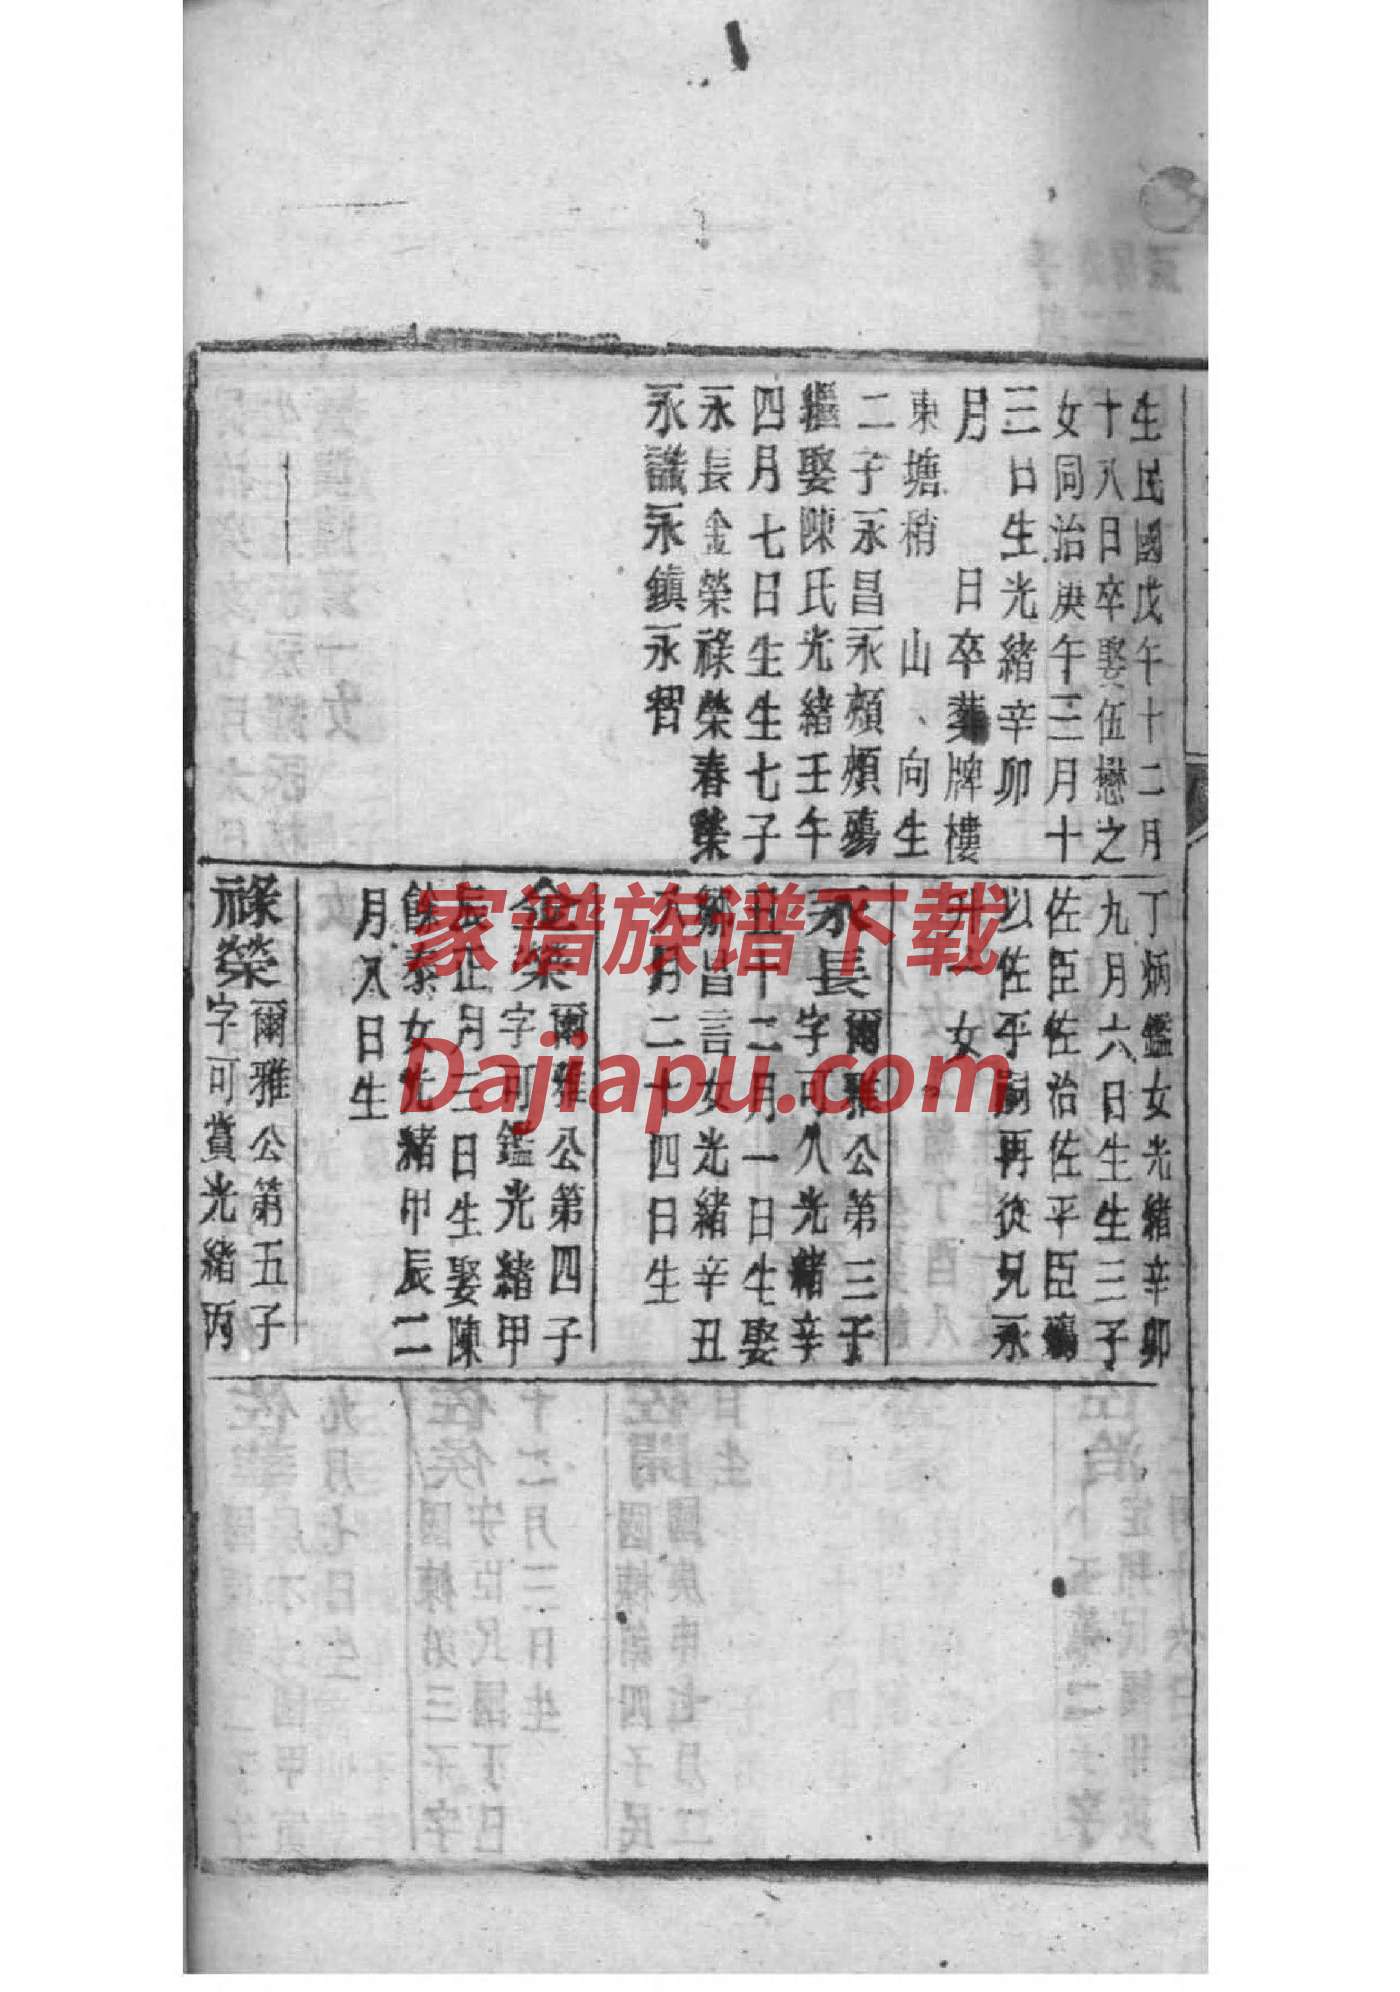 生民國戊午十二月
十八日卒娶伍懋之
女同治庚午三月十
三日生光緒辛卯
月 日卒葬牌樓
東塘稍 山 向生
二子永昌永頻頻殤
繼娶陳氏光緒壬午
四月七日生生七子
永長金榮祿榮春榮
永讖永鎮永智
丁炳鑑女光緒辛卯
九月六日生生三子
佐臣佐治佐平臣殤
以佐平嗣再從兄永
女
永長爾雅公第三子
字可久光緒辛
丑十二月一日生娶
昌言女光緒辛丑
八月二十四日生
金榮爾雅公第四子
字可鑑光緒甲
辰正月三日生娶陳
餘泰女光緒甲辰二
月入日生
祿榮爾雅公第五子
字可賞光緒丙
家谱族谱下载
Dajiapu.com